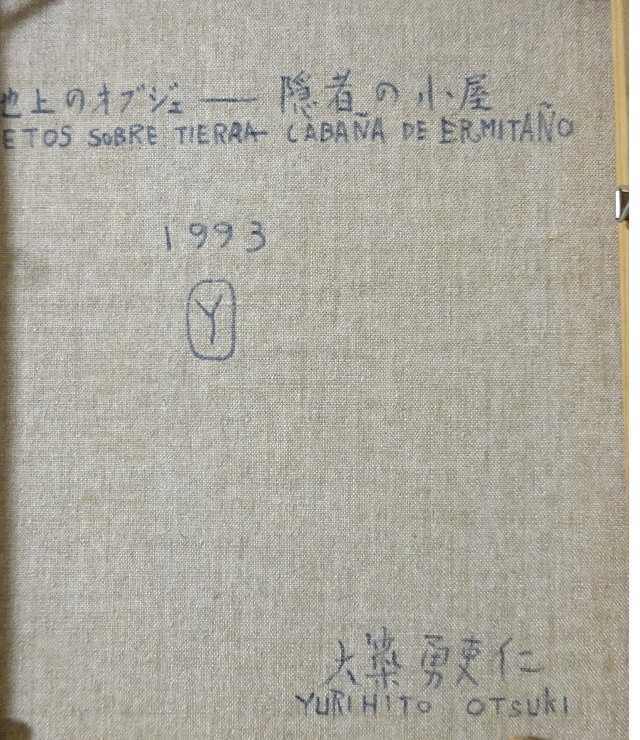 地上のオブジェ — 隠者の小屋
ETOS SOBRE TIERRA- CABAÑA DE ERMITAÑO
1993
Y
大築勇吏仁
YURIHITO OTSUKI